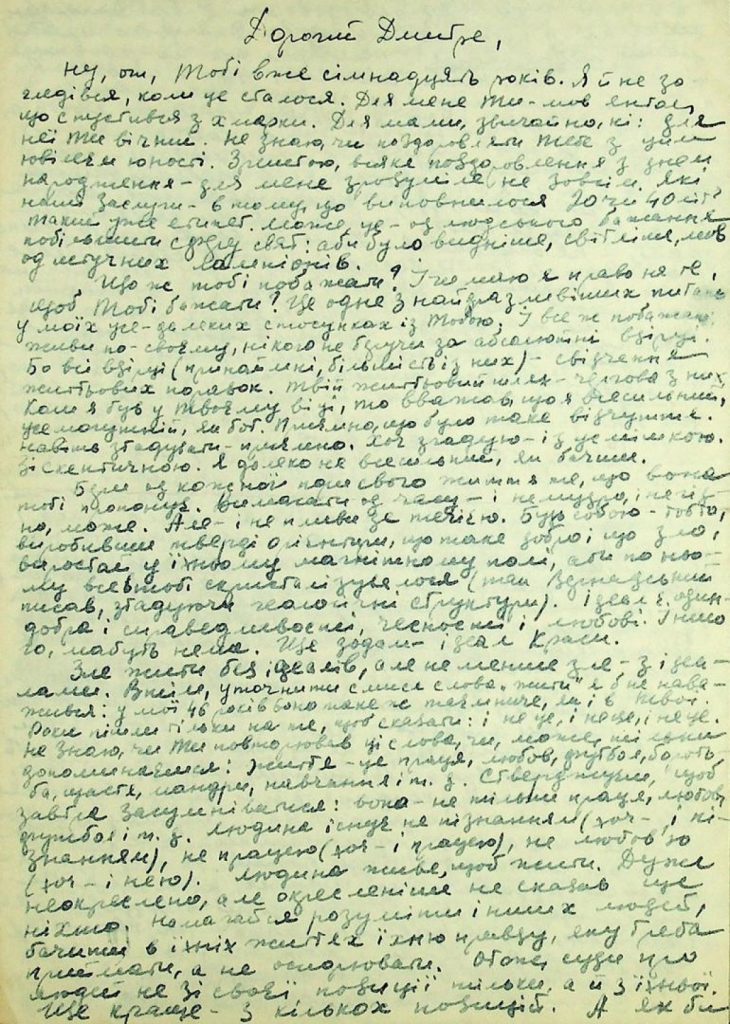 Дорогий Дмитре,
Ну, от, Тобі вже сімнадцять років. Я й не за-
гледівся, коли це сталося. Для мене Ти – мов янгол,
що спустився з хмарки. Для мами, звичайно, ні: для
неї Ти вічний. Не знаю, чи поздоровляти Тебе з цим
ювілеєм юності. Зрештою, всяке поздоровлення з днем
народження – для мене зрозуміле не зовсім. Які
наші заслуги – в тому, що виповнилося 20 чи 40 літ?
Такий уже етикет. Може, це – од людського бажання
побільшити суму свят: аби було видніше, світліше, мов
од летючих лампіонів.
Що ж тобі побажати? І чи маю я право на те,
щоб Тобі бажати? Це одне з найдразливіших питань
у моїх уже-далеких стосунках із Тобою, І все ж побажаю:
живи по-своєму, нікого не беручи за абсолютні взірці.
Бо всі взірці (принаймні, більшість із них) – свідчення
життєвих поразок. Твій життєвий шлях – чергова з них.
Коли я був у Твоєму віці, то вважав, що я всесильний,
усемогутній, як бог. Приємно, що було таке відчуття.
Навіть згадувати – приємно. Хоч згадую – із усмішкою.
Зі скептичною. Я далеко не всесильний, як бачиш.
Бери од кожної пори свого життя те, що вона
тобі пропонує. Вимагати од часу – і немудро, і не гід-
но, може. Але – і не пливи за течією. Будь собою – тобто,
виробивши тверді орієнтири, що таке добро і що зло,
виростай у їхньому магнітному полі, аби по ньо-
му все в тобі скристалізувалося (так Вернадський
писав, згадуючи геологічні структури). Ідеал є один –
добра і справедливості, чесності і любові. Іншо-
го, мабуть, нема. Ще додам – ідеал Краси.
Зле жити без ідеалів, але не менше зле – з ідеа-
лами. Втім, уточнити смисл слова „жити“ я б не нава-
жився: у мої 46 років воно таке ж таємниче, як і в Твої.
Роки пішли тільки на те, щоб сказати: і не це, і не це, і не це.
Не знаю, чи Ти повторював ці слова, чи, може, ті іще
допоминаємся: життя – це праця, любов, дружба, бороть-
ба, щастя, мандри, навчання і т. д. Стверджуєш, щоб
завтра засумніватися: воно – не тільки праця, любов,
дружба і т. д. Людина існує не пізнанням (хоч – і пі-
знанням), не працею (хоч – і працею), не любов'ю
(хоч – і нею). Людина живе, щоб жити. Дуже
неокреслено, але окресленіше не сказав ще
ніхто. Намагайся розуміти інших людей,
бачити в їхніх життях їхню правду, яку треба
приймати, а не оспорювати. Отже, суди про
людей не зі своєї позиції тільки, а й з їхньої.
Ще краще – з кількох позицій. А як би